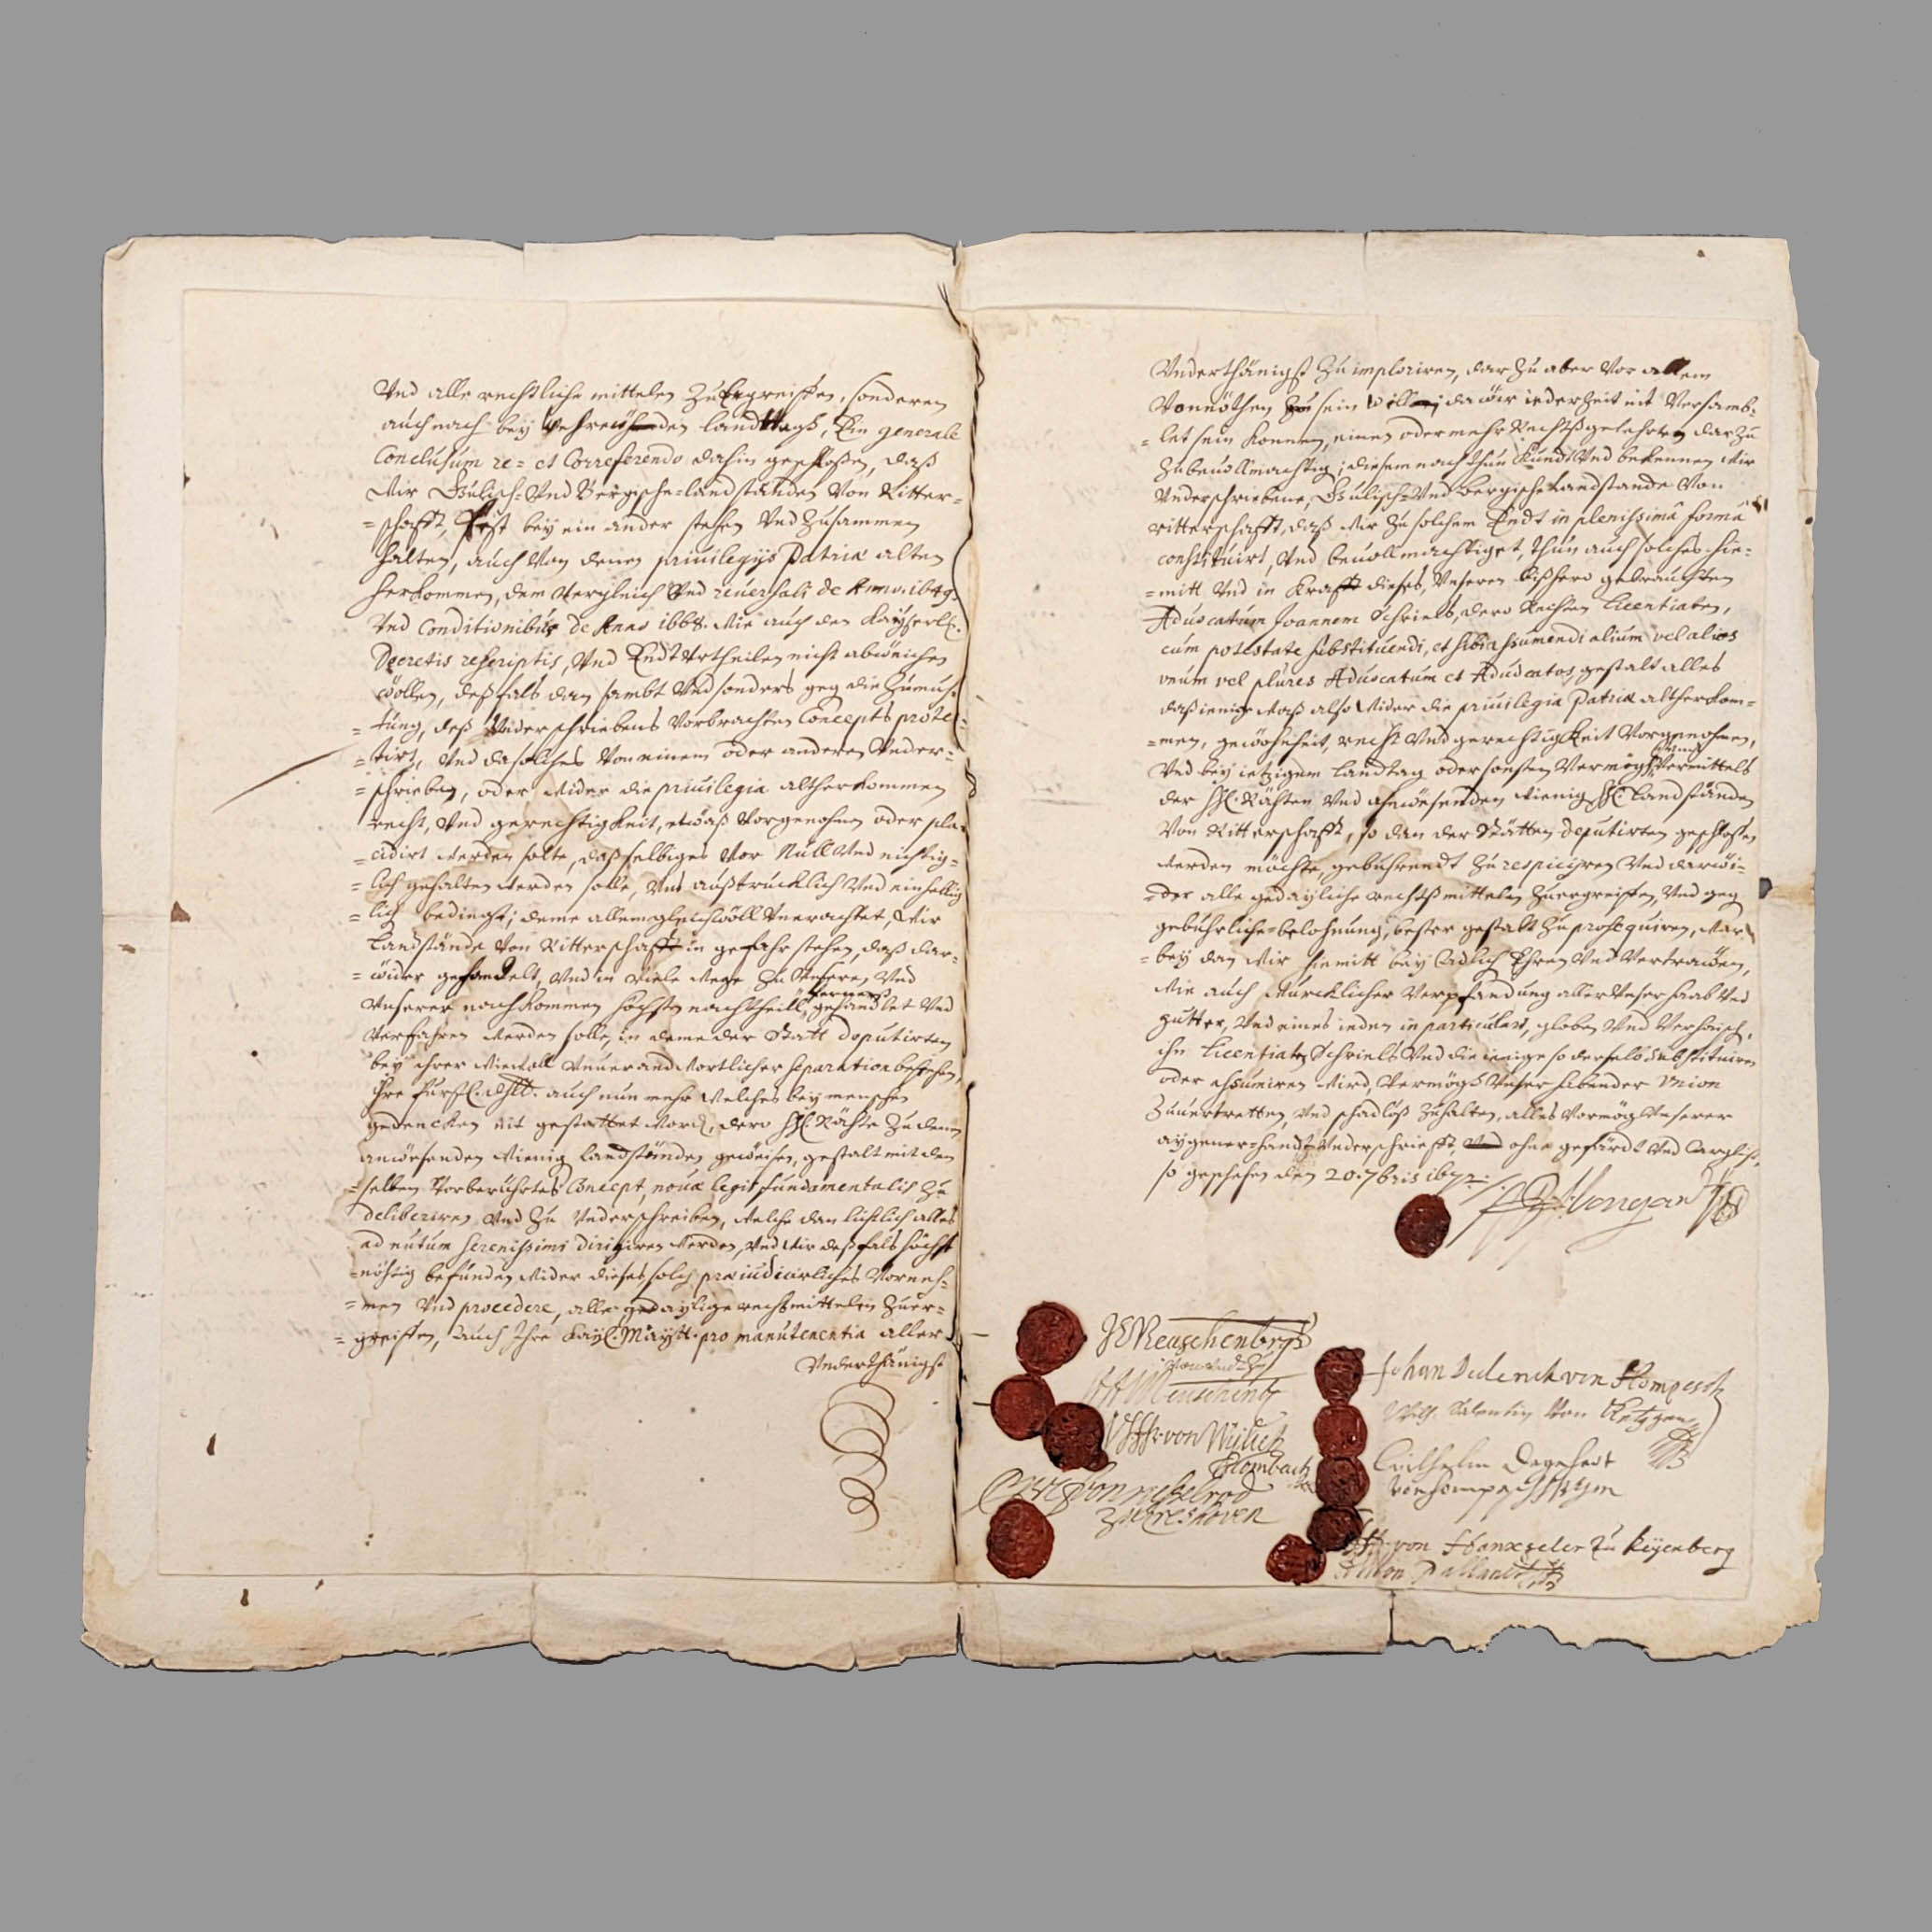 Vnd alle rechtliche mittelen Zu Ergreiffen, sonderen
auch nach bey wehrendden landttags, Ein generale
Conclusum re= et Correferendo dahin geschloßen, daß
Wir Gülisch= Vnd Bergische=landständen Von Ritter=
=schafft, Fest bey ein ander stehen Vnd Zusammen
halten, auch Von denen priuilegijs Patriæ alten
herkommen, dem Vergleich Vnd reuersali de Anno. 1649.
Vnd Conditionibus de Anno 1668. Wie auch den Kayserl.
Decretis rescriptis, Vnd Endt Vrtheilen nicht abweichen
wollen, deßfals dan sambt Vnd sonders geg die Zumuh=
=tung, deß Vnderschriebens Vorbrachten Concepts protes=
=tirt, Vnd da solches Von einem oder anderen Vnder=
=schrieben, oder Wider die priuilegia altherkommen
recht, Vnd gerechtigkeit, etwaß Vorgenohmen oder pla=
=cidirt Werden solte, daß selbiges Vor Null Vnd nichtig=
=lich gehalten Werden solle, Vns außtrucklich Vnd einhellig
=lich bedingt; deme allem gleichwoll Vnerachtet, Wir
Landstände Von Ritterschafft in gefahr stehen, daß dar=
=wider gehandelt, Vnd in Viele Wege Zu Vnseren, Vnd
Vnserer nachkommen höchsten nachtheill gehandlet Vnd
Verfahren Werden solle, in deme der Statt deputirten
bey ihrer Wiewoll Vnuerandtwortlicher separation bestehen,
Ihre Fürstl. Dhlt. auch nun mehr Welches bey menschen
gedencken nit gestattet Word. dero HH. Rähte Zu denen
anwesenden Wienig landständen geweisen, gestalt mit den
=selben Vorberührtes Concept, nouæ legis fundamentalis Zu
deliberiren Vnd Zu Vnderschreiben, Welche dan lichtlich alles
ad nutum serenissimi dirigiren Werden, Vnd Wir deßfals höchst
=nöhtig befunden Wider dieses solch præiudicirliches Vorneh=
=men Vnd procedere, alle gedaylige rechtsmittelen Zuer=
=greiffen, auch Ihre Kayl. Maytt. pro manutenentia aller
Vnderthänigst
Vnderthänigst Zu imploriren, dar Zu aber Vor allem
Vonnöthen sein will, da wir iederZeit nit Versamb=
=let sein konnen, einen oder mehr Rechtßgelehrten dar Zu
Zubeuollmachtig; diesem nach thun Kundt Vnd bekennen Wir
Vnderschriebene, Gulisch= Vnd bergische Landstande Von
ritterschafft, daß Wir Zu solchem Endt in plenissimâ formâ
constituirt, Vnd beuollmachtiget, thun auch solches hie=
=mitt Vnd in Krafft dieses, Vnseren bißhero gebrauchten
Aduocatum Joannem Schriels, dero Rechten Licentiaten,
cum potestate substituendi, et sibi assumendi alium vel alios
vnum vel plures Aduocatum et Aduocatos, gestalt alles
daßienige Waß also Wider die priuilegia Patriæ altherkom=
=men, gewohnheit, recht Vnd gerechtigkeit Vorgenohmen,
Vnd bey ietzigem landtag oder sonsten Vermög Vermittels
der HH. Rähten Vnd anwesenden Wienig HH. Landständen
Von Ritterschafft, so dan der Stätten deputirten geschloßen
Werden möchte, gebührendt Zu respicijren Vnd darwi=
=der alle gedayliche rechtßmittelen Zuergreiffen, Vnd geg
gebührliche=belohnung, bester gestalt Zu prosequiren, War
=bey dan Wir hiemitt bey Adlich Ehren Vnd Vertrawen,
Wie auch Würcklicher Verpfandung aller Vnser haab Vnd
gutter, Vnd eines ieden in particulari, globen Vnd Versprech.
ihn Licentiaten Schriels Vnd die ienige so derselb substituiren
oder assumiren Wird, Vermög Vnser habender Vnion
Zuuertretten, Vnd schadloß Zuhalten, alles Vermög Vnserer
aygener=handt Vnderschrifft, ohne gefärdt Vnd Arglist,
so geschehen den 20. 7bris 1672.
Bongard
Reuschenberg
von Wylich
von nesselrod
Zu Ereshoven
Johan von Hompesch
Von
Wilhelm Degehart
von hompesch
von Hanxeler zu Keyenberg
von Pallandt